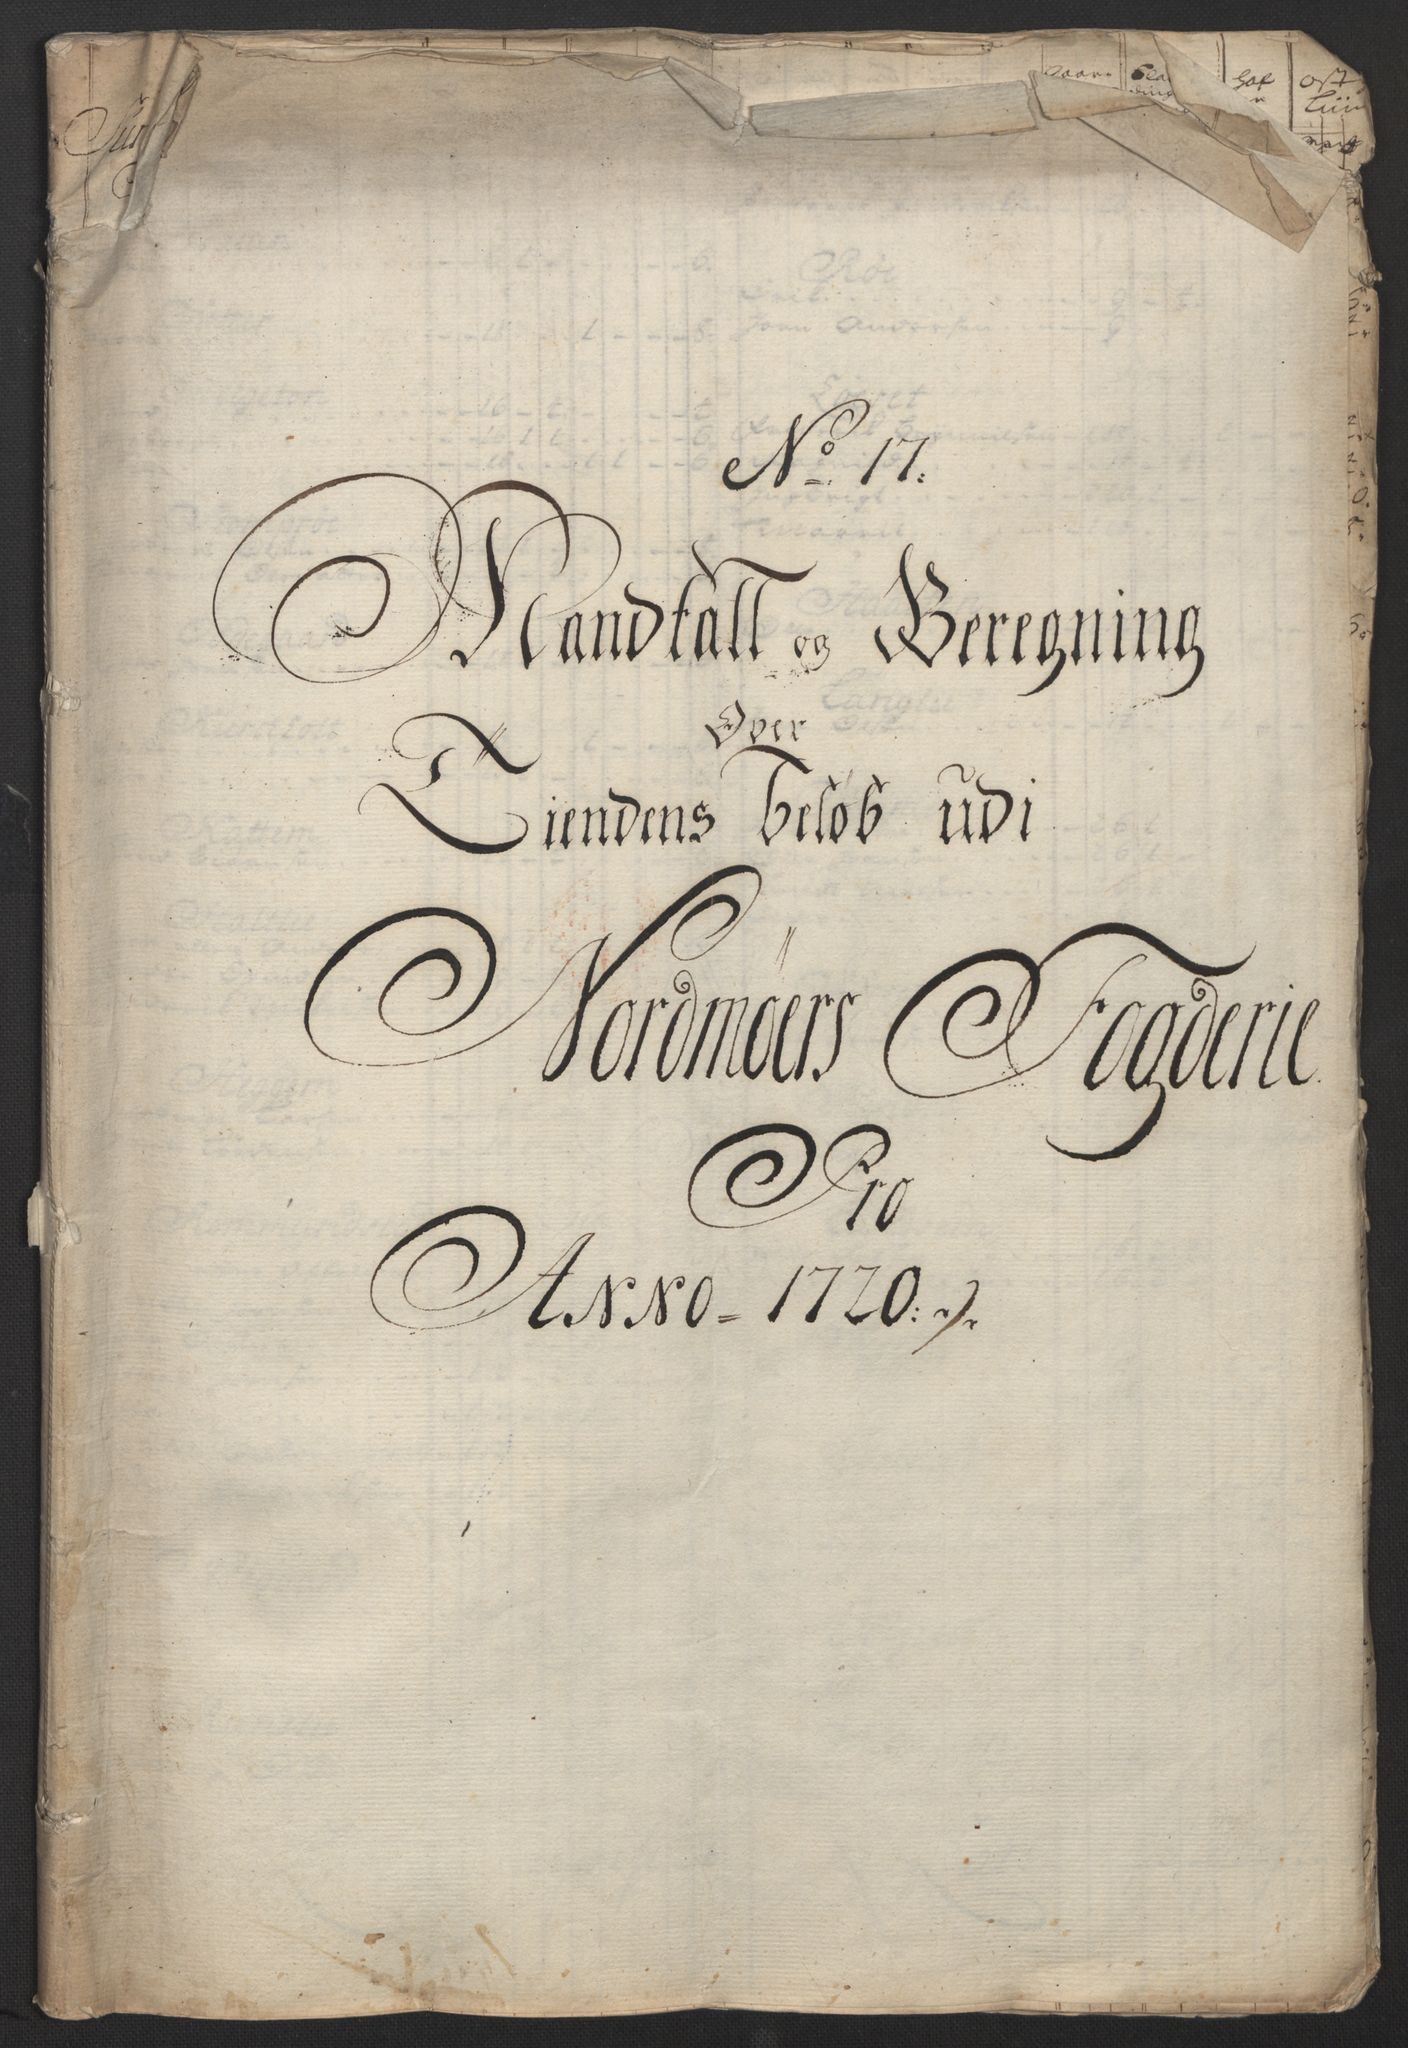 No 17.
Mandtall og Beregning
Over
Tiendens beløb udi
Nordmøers Fogderie
Pro
Anno 1720
ost